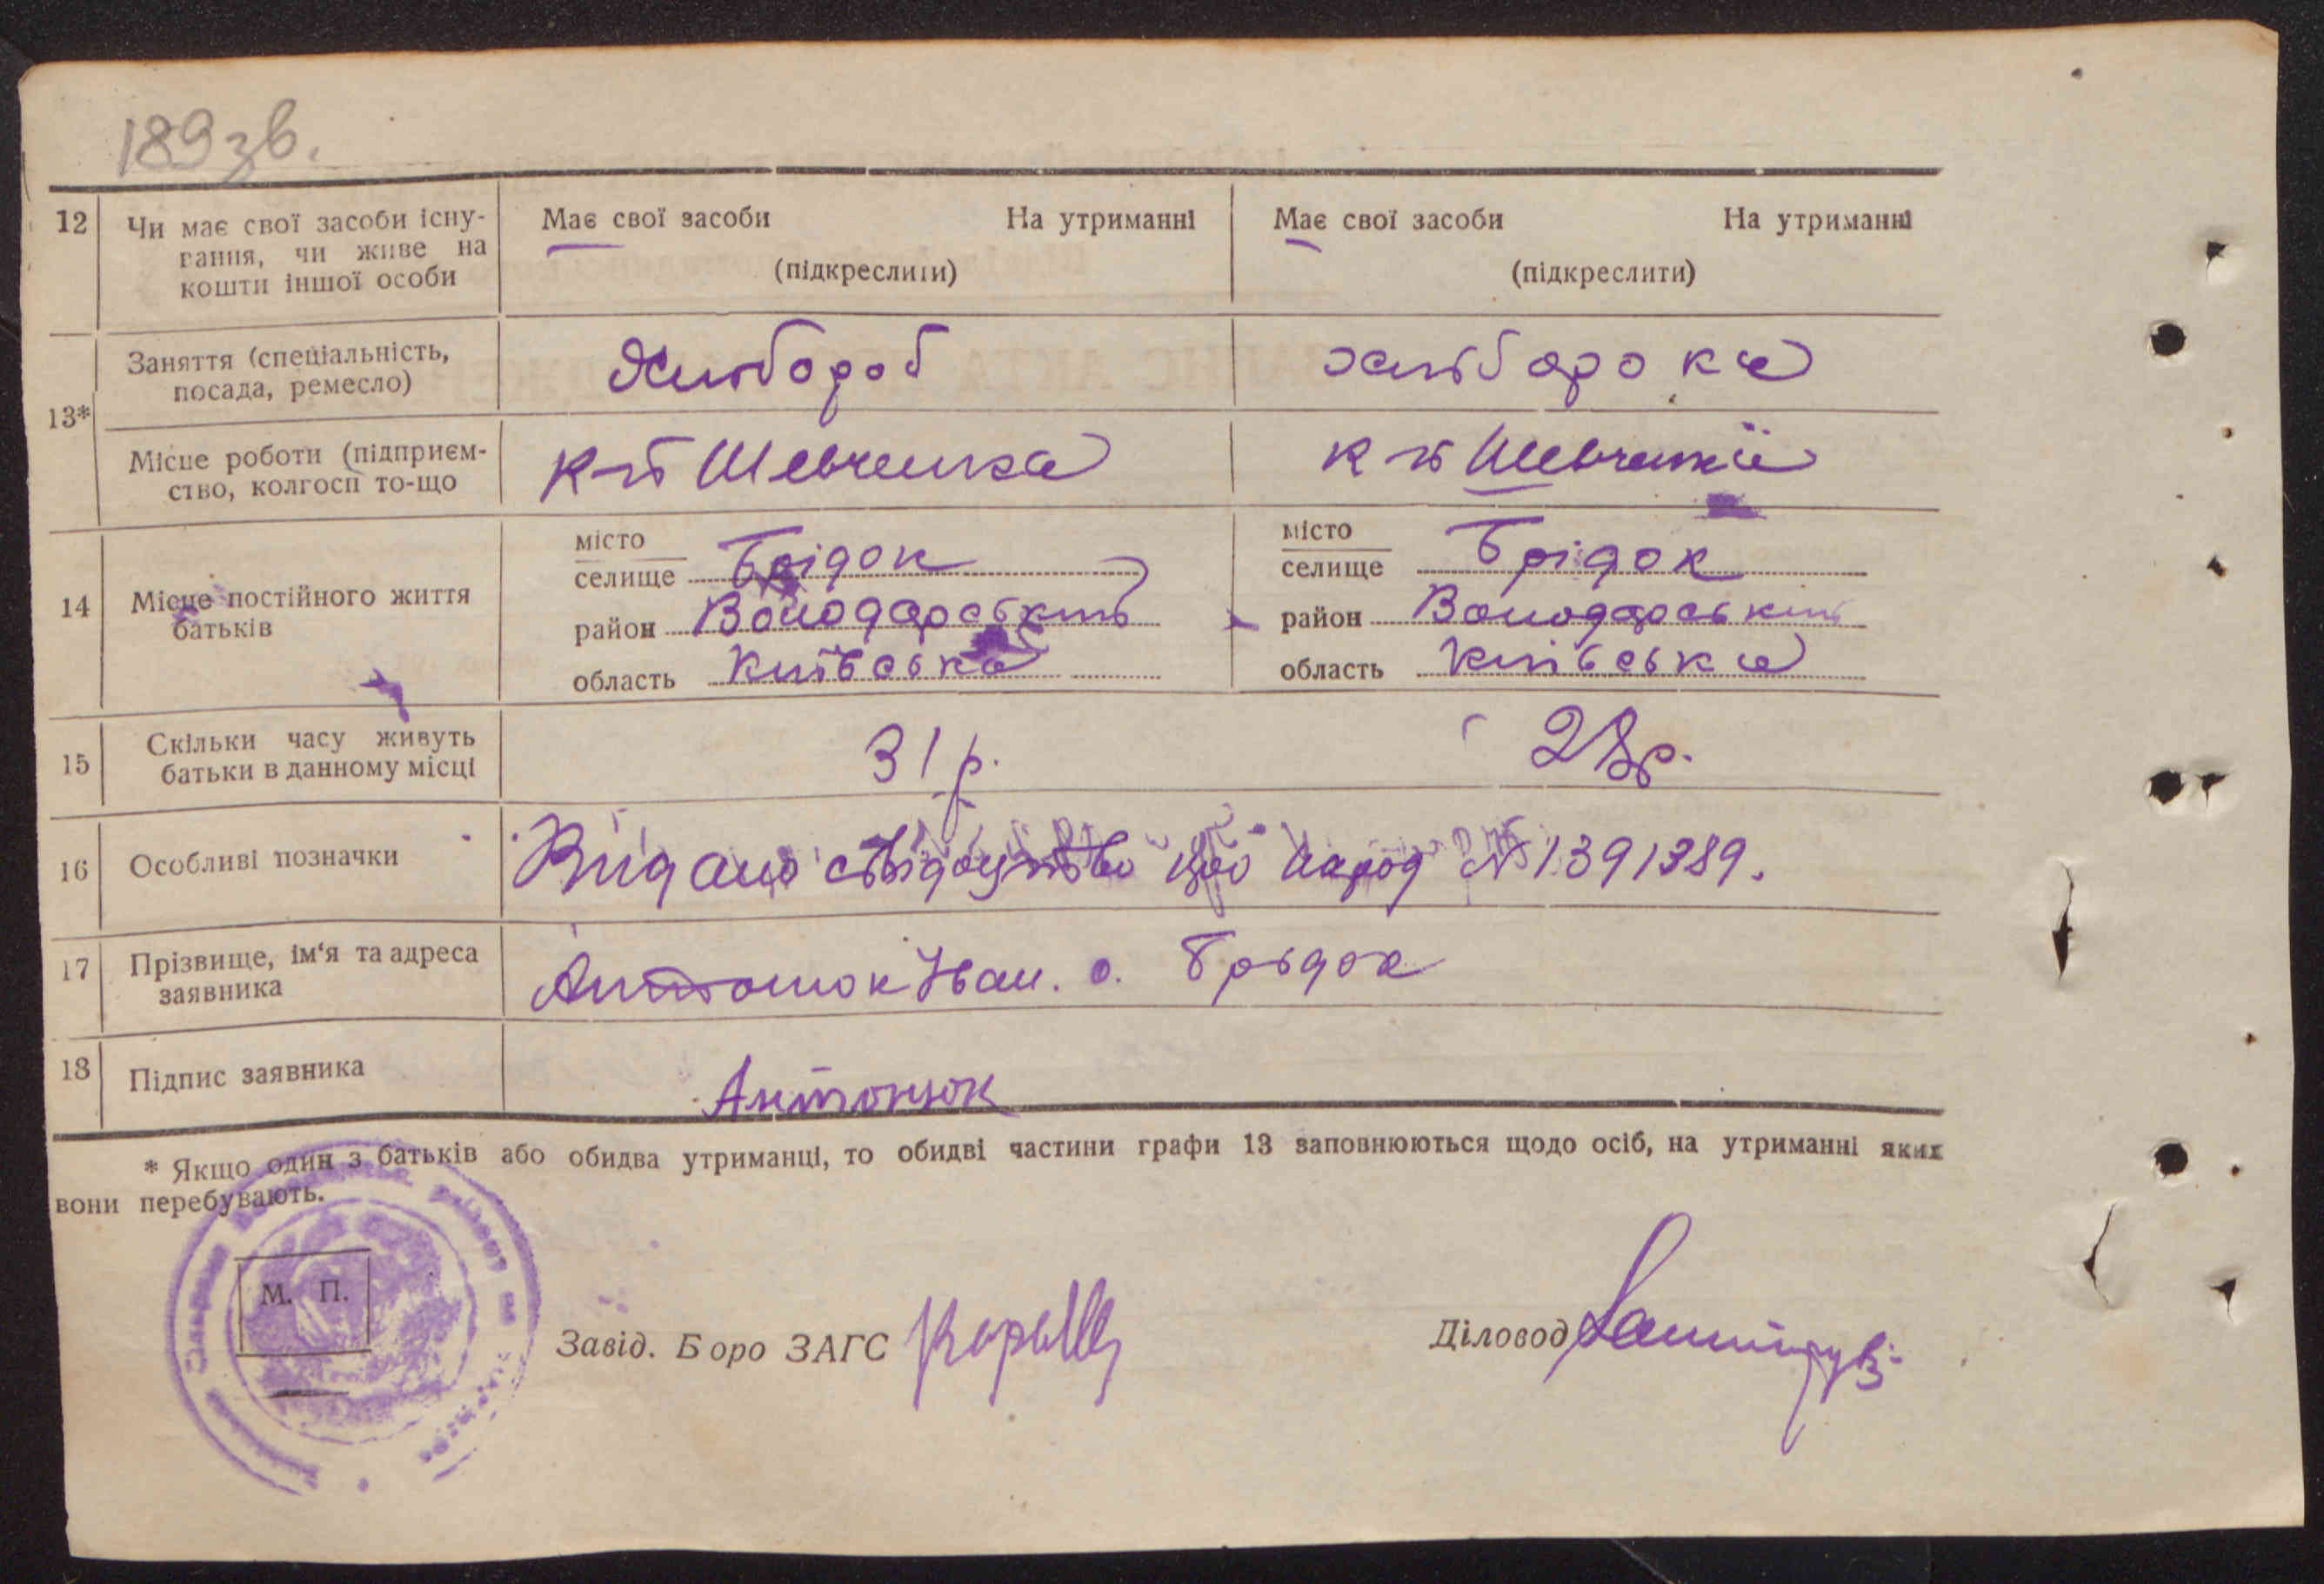 189 зв.
12 Чи має свої засоби існу-
вання, чи живе на
кошти іншої особи
Має свої засоби На утриманні
(підкреслити)
Має свої засоби На утриманні
(підкреслити)
13*
Заняття (спеціальність,
посада, ремесло)
Хлібороб
хліборобка
Місце роботи (підприєм-
ство, колгосп то-що
к-п Шевченка
к-п Шевченка
14 Місце постійного життя
батьків
місто
селище Брідок
район Володарський
область Київська
місто
селище Брідок
район Володарський
область Київська
15 Скільки часу живуть
батьки в данному місці
31 р.
28 р.
16 Особливі позначки
Видано свідоцтво про народ № 1391389.
17 Прізвище, ім‘я та адреса
заявника
Антонюк Іван. с. Брідок
18 Підпис заявника
Антонюк
* Якщо один з батьків або обидва утриманці, то обидві частини графи 13 заповнюються щодо осіб, на утриманні яких
вони перебувають.
М. П.
Завід. Б оро ЗАГС
Діловод